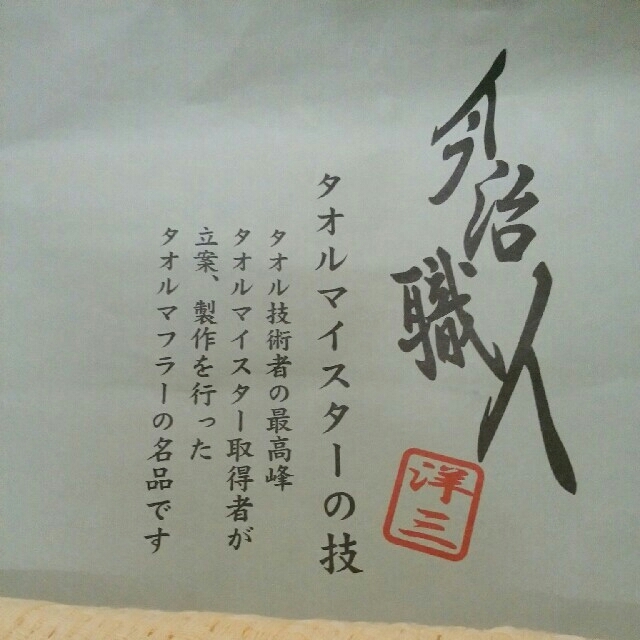 今治
職人
洋三
タオルマイスターの技
タオル技術者の最高峰
タオルマイスター取得者が
立案、製作を行った
タオルマフラーの名品です